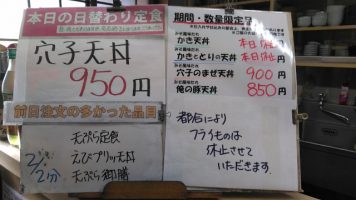 本日の日替わり定食
穴子天丼
950円
前日注文の多かった品目
2/2分
天ぷら定食
えびプリッ天丼
天ぷら御膳
期間・数量限定
かき天丼 本日休止
かきととりの天丼 本日休止
穴子のまぜ天丼 900円
俺の豚天丼 850円
都合により
フライものは
休止させて
いただきます